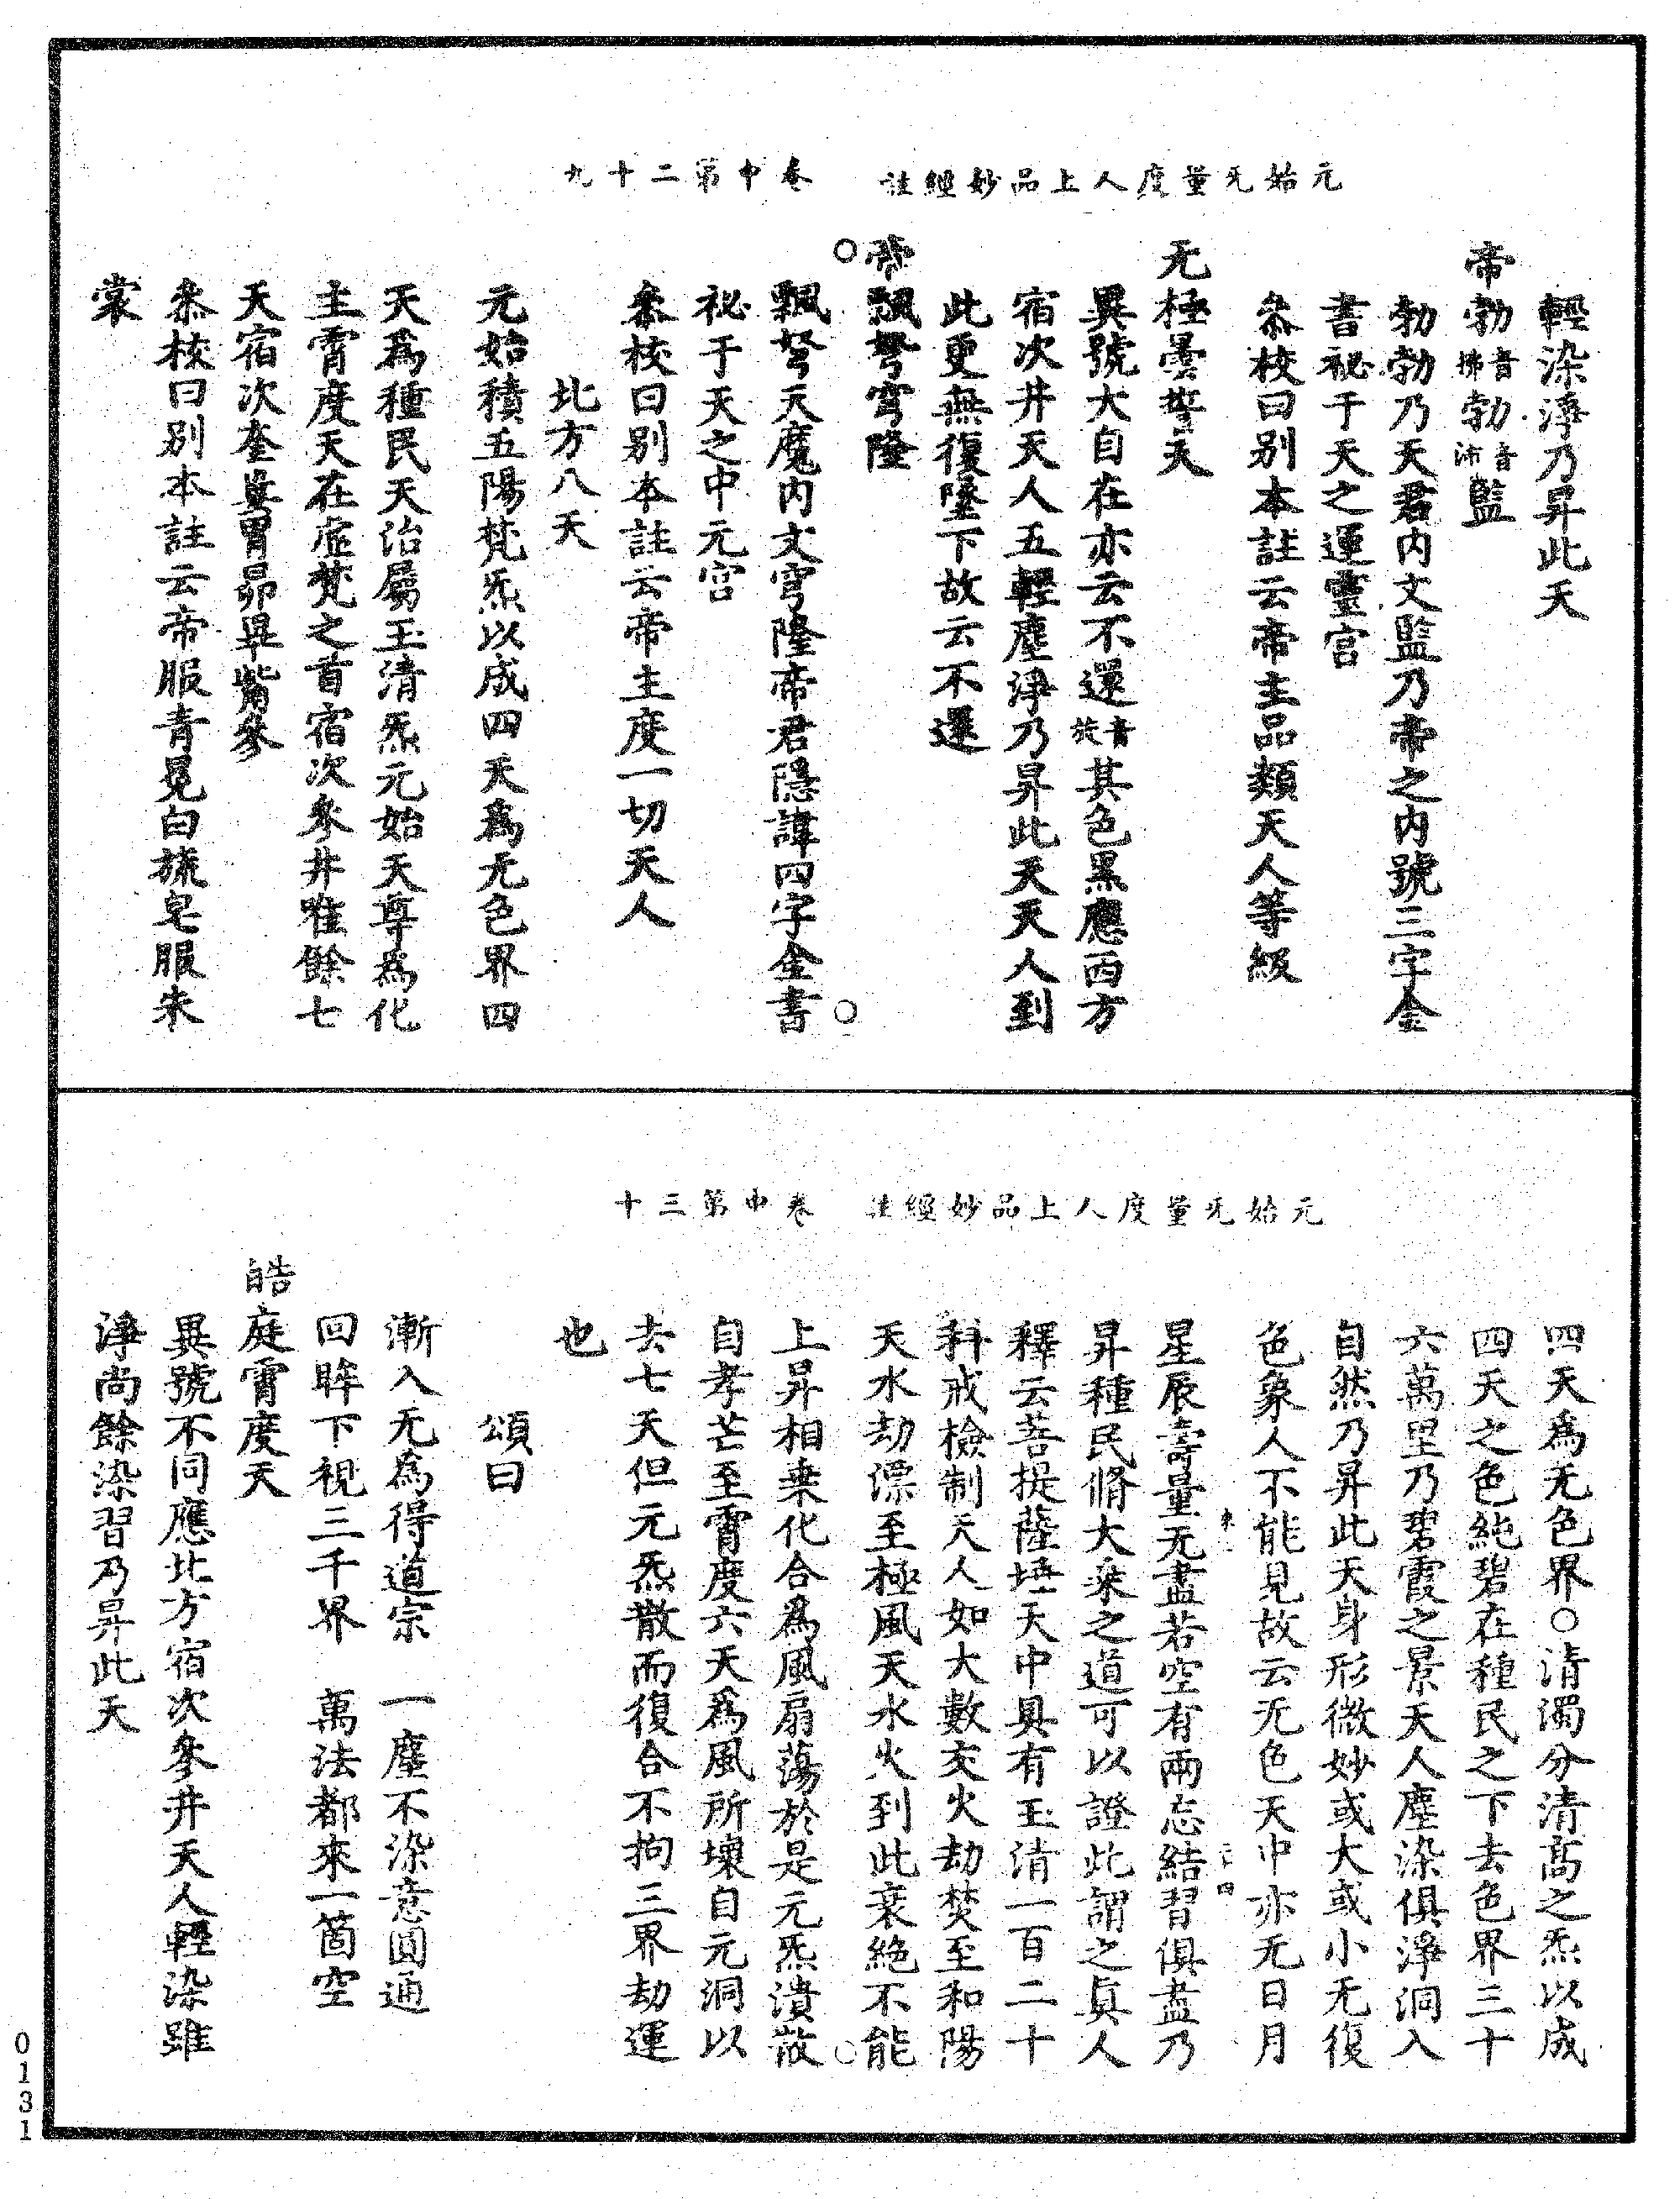 元始无量度人上品妙經註　卷中第二十九
輕染淨乃昇此天
帝勃音拂勃音沛監
勃勃乃天君内文監乃帝之内號三字金
書祕于天之運靈宫
叅校曰别本註云帝主品類天人等級
无極曇誓天
異號大自在亦云不還音旋其色黑應西方
宿次井天人五輕塵淨乃昇此天天人到
此更無復墜下故云不還
帝飄弩穹隆
飄弩天魔内文穹隆帝君隱諱四字金書
祕于天之中元宫
叅校曰别本註云帝主度一切天人
北方八天
元始積五陽梵炁以成四天爲无色界四
天爲種民天治屬玉清炁元始天尊爲化
主霄度天在虛梵之首宿次參井唯餘七
天宿次奎婁胃昴畢觜參
叅校曰别本註云帝服青冕白旒皂服朱
裳
元始无量度人上品妙經註　卷中第三十
四天爲无色界○清濁分清髙之炁以成
四天之色純碧在種民之下去色界三十
六萬里乃碧霞之景天人塵染俱淨洞入
自然乃昇此天身形微妙或大或小无復
色象人不能見故云无色天中亦无日月
星辰壽量无盡若空有兩忘結習俱盡乃
昇種民脩大乗之道可以證此謂之眞人
釋云菩提薩埵天中具有玉清一百二十
科戒檢制天人如大數交火劫焚至和陽
天水劫漂至極風天水火到此衰絶不能
上昇相乗化合爲風扇蕩於是元炁潰散
自孝芒至霄度六天爲風所壞自元洞以
去七天但元炁散而復合不拘三界劫運
也
頌曰
漸入无爲得道宗　一塵不染意圓通
回眸下視三千界　萬法都來一箇空
皓庭霄度天
異號不同應北方宿次參井天人輕染雖
淨尚餘染習乃昇此天
0131